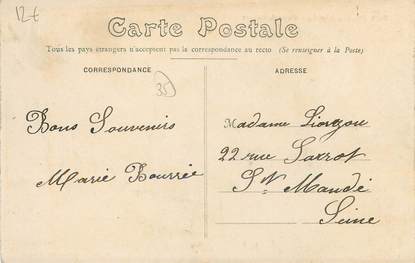 12€
Carte Postale
Tous les pays étrangers n'acceptent pas la correspondance au recto (Se renseigner à la Poste)
CORRESPONDANCE
35
ADRESSE
Bons Souvenirs
Marie Bourrée
Madame
22 rue Sarrot
St Mandé
Seine